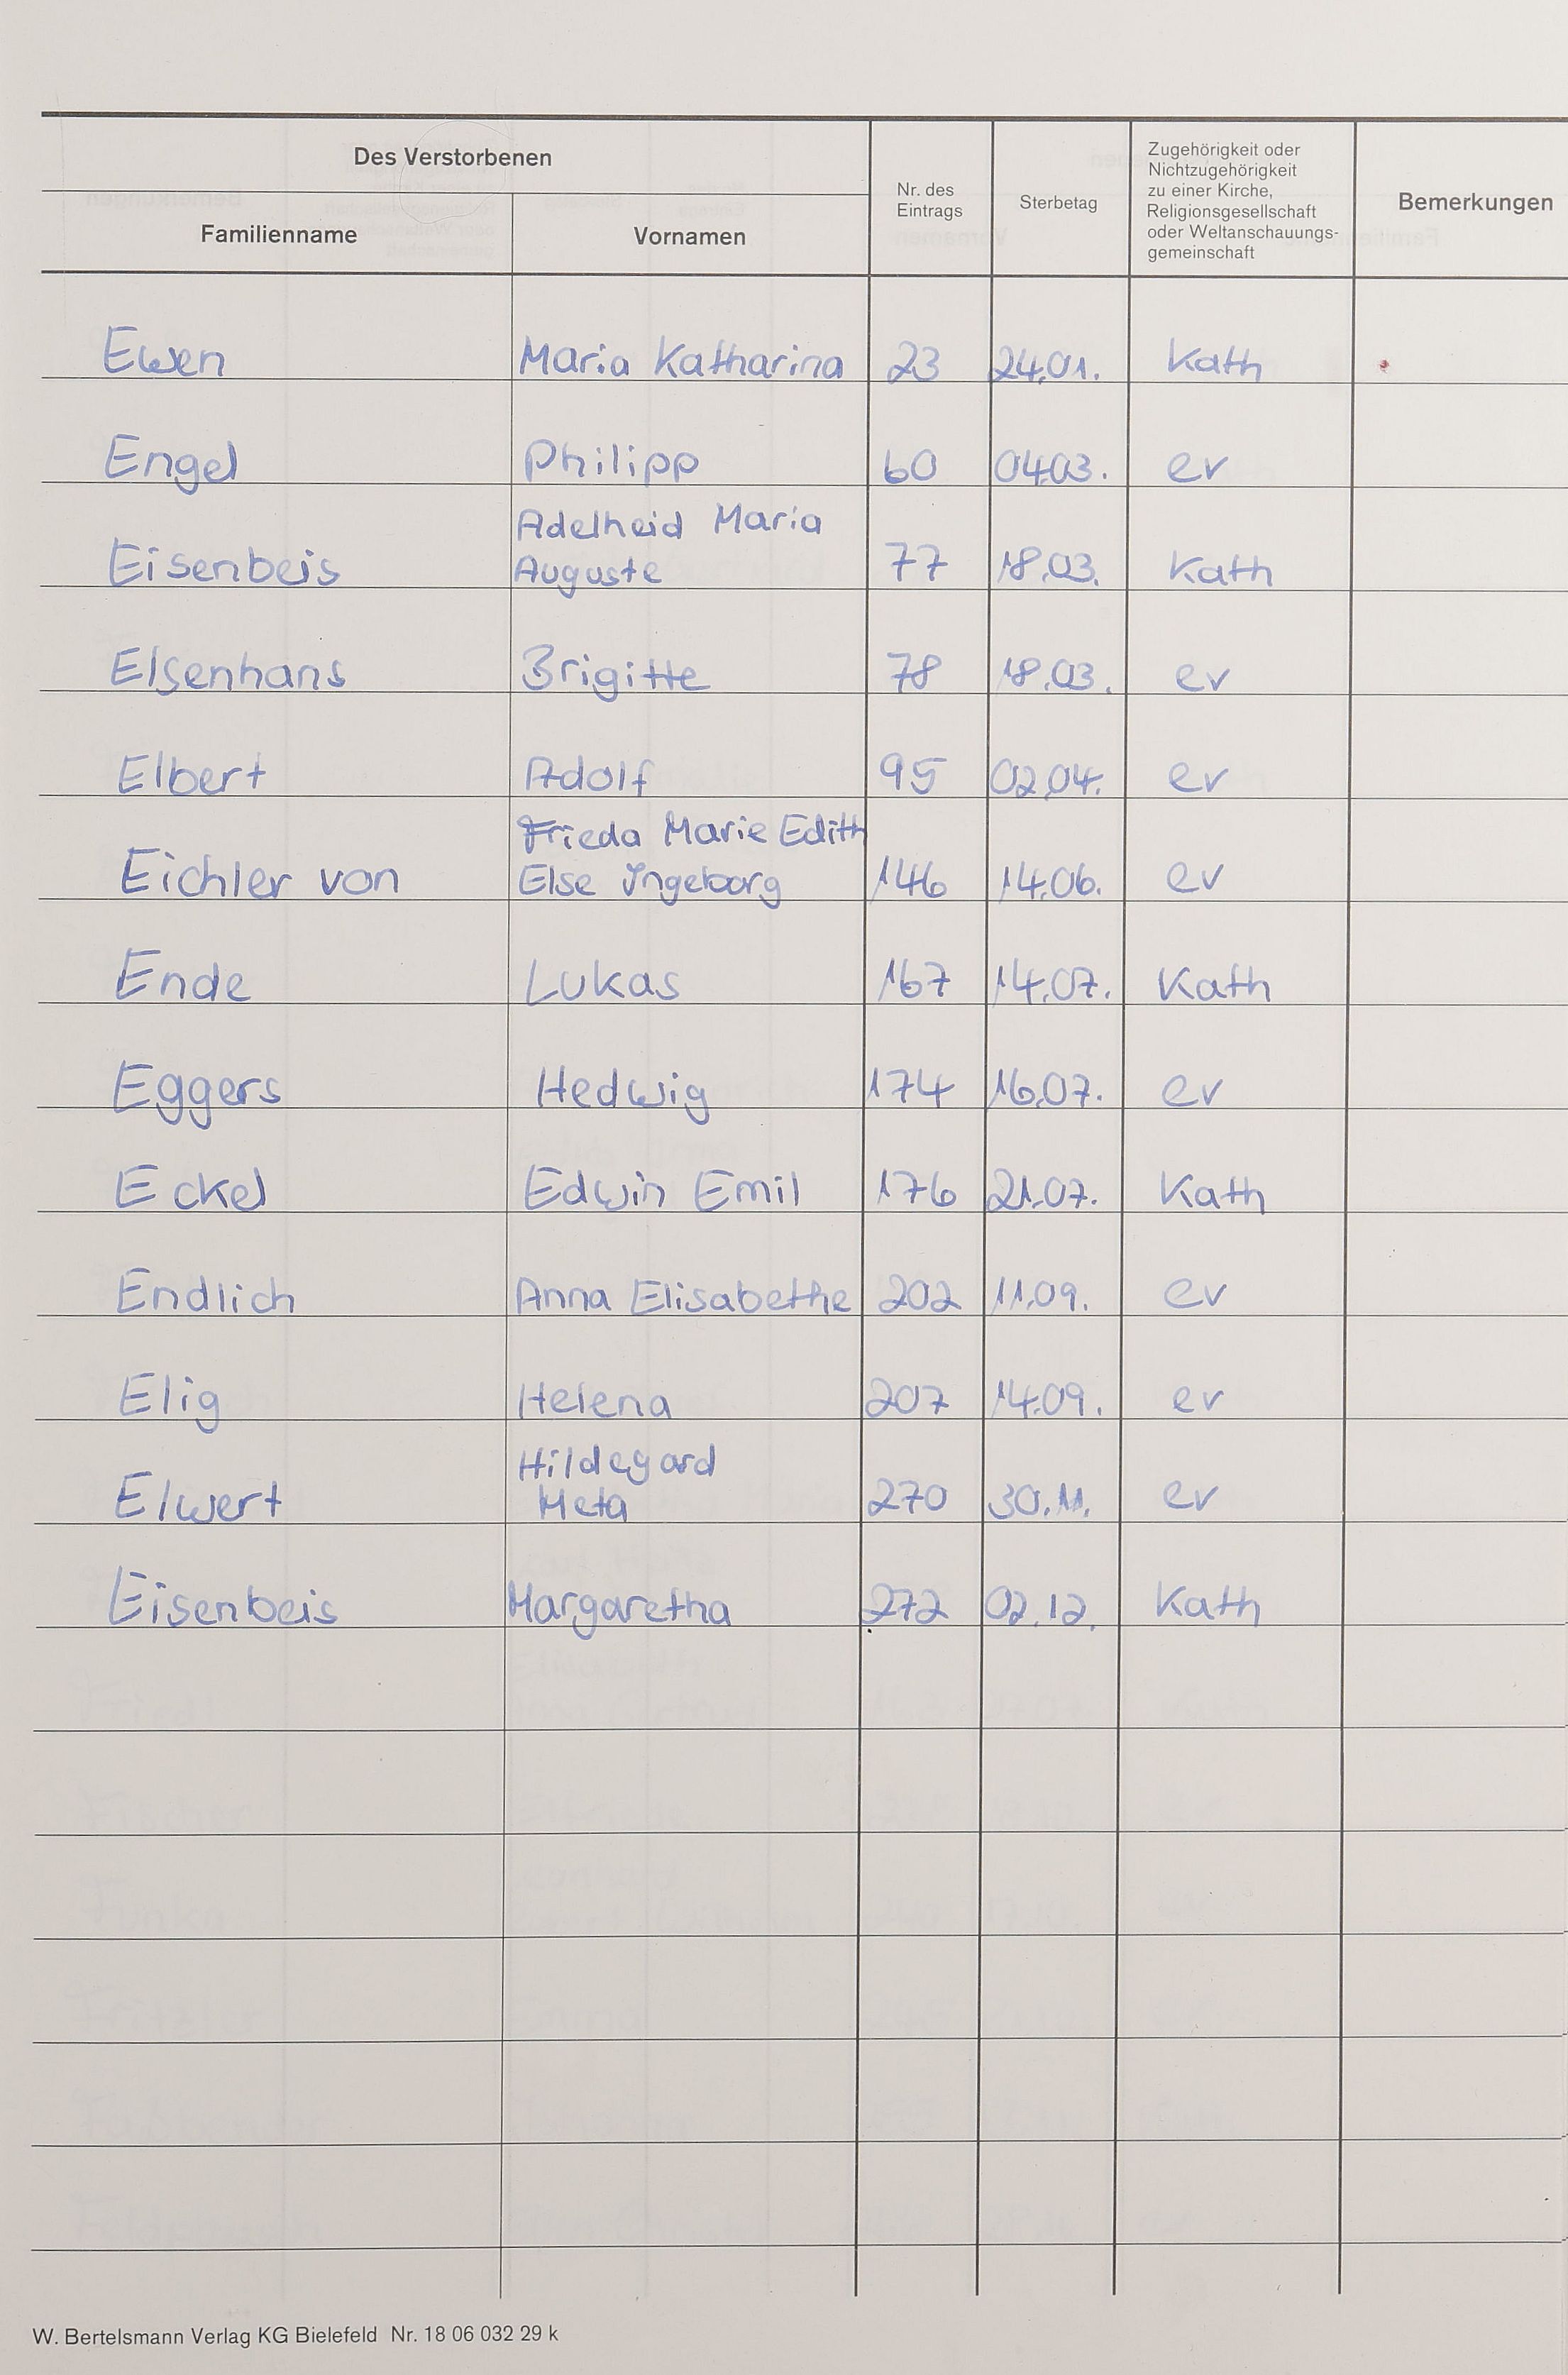 Des Verstorbenen
Familienname Vornamen
Nr. des
Eintrags
Sterbetag
Zugehörigkeit oder
Nichtzugehörigkeit
zu einer Kirche,
Religionsgesellschaft
oder Weltanschauungs-
gemeinschaft
Bemerkungen
Ewen Maria Katharina 23 24.01. Kath
Engel Philipp 60 04.03. ev
Adelheid Maria
Eisenbeis Auguste 77 18.03. Kath
Elsenhans Brigitte 78 18.03. ev
Elbert Adolf 95 02.04. ev
Frieda Marie Edith
Eichler von Else Ingeborg 146 14.06. ev
Ende Lukas 167 14.07. Kath
Eggers Hedwig 174 16.07. ev
Eckel Edwin Emil 176 21.07. Kath
Endlich Anna Elisabethe 202 11.09. ev
Elig Helena 207 14.09. ev
Hildegard
Elwert Meta 270 30.11. ev
Eisenbeis Margaretha 272 02.12. Kath
W. Bertelsmann Verlag KG Bielefeld Nr. 18 06 032 29 k